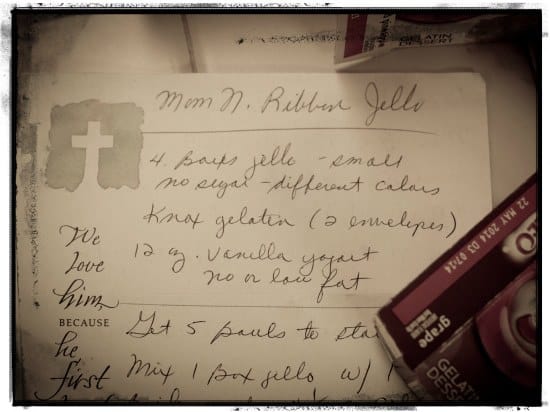 Mom N. Ribbon Jello
4. boxes jello - small
no sugar - different colors
Knox gelatin (2 envelopes)
12 oz. vanilla yogurt
no or low fat
Get 5 bowls to sta
Mix 1 box jello w/ 1
We
love
him,
BECAUSE
he
first
GELATIN
DESSERT
22 MAY 2014 D3 07:14
grape
GELATIN
DESSE